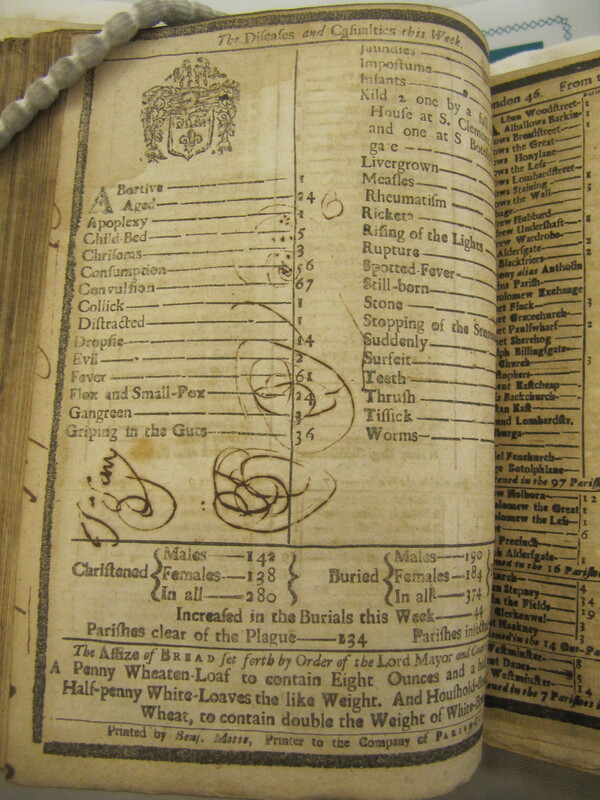 The Diseases and Casualties this Week.
Abortive 1
Aged 24
Apoplexy 1
Child-Bed 5
Chrisoms 3
Consumption 56
Convulsion 67
Collick 1
Distracted 1
Dropsie 14
Evil 2
Fever 61
Flox and Small-Pox 24
Gangreen
Griping in the Guts 36
Jaundies
Impostume
Infants
Kild 2 one by a fall
House at S. Clemen
and one at S Botol
gate
Livergrown
Measles
Rheumatism
Rickets
Rising of the Lights
Rupture
Spotted-Fever
Still-born
Stone
Stopping of the Stom
Suddenly
Surfeit
Teeth
Thrush
Tissick
Worms
Christened
Males 142
Females 138
In all 280
Buried
Males 190
Females 184
In all 374
Increased in the Burials this Week 44
Parishes clear of the Plague 134 Parishes infect
The Assize of BREAD set forth by Order of the Lord Mayor and Court
A Penny Wheaten-Loaf to contain Eight Ounces and a half
Half-penny White-Loaves the like Weight. And Houshold
Wheat, to contain double the Weight of White
Printed by Benj. Motte, Printer to the Company of PARISH
ondon 46. From t
Alban Woodstreet 1
Alhallows Barkin
ows Breadstreet
ows the Great
ows Honylane
ows the Less
ows Lombardstreet
ows Staining
ows the Wall
rew Hubbard
rew Undershaft
rew Wardrobe
Aldersgate
Blackfriers
ony alias Antholin
ins Parish
olomew Exchange
et Finck
et Gracechurch
et Paulswharf
et Sherehog
lph Billingsgate
Church
stophers
ent Eastcheap
s Backchurch
tan East
und Lombardstr.
burga
el Fenchurch
ge Botolphlane
tened in the 97 Parish
ew Holborn 12
olomew the Great 1
olomew the Less 1
Precinct
h Aldersgate 1
ned in the 16 Parish
Stepney 34
in the Fields
Clerkenwel
Hackney
ned in the 14 Out-Par
ent Danes 8
Westminster 14
ened in the 7 Parishes